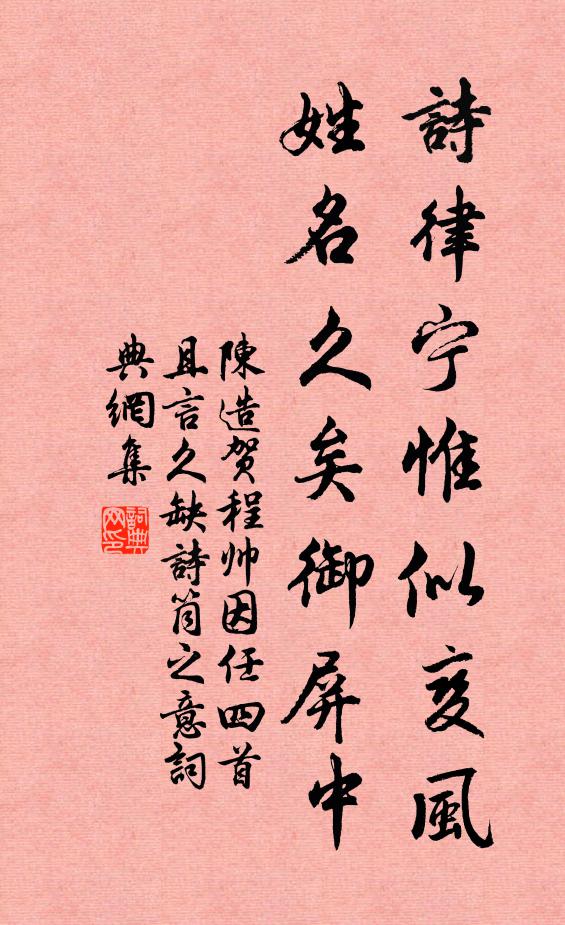 詩律宁惟似变風
姓名久矣御屏中
陳造贺程帅因任四首
且言久缺詩筒之意詞
典網集
詞典
网印